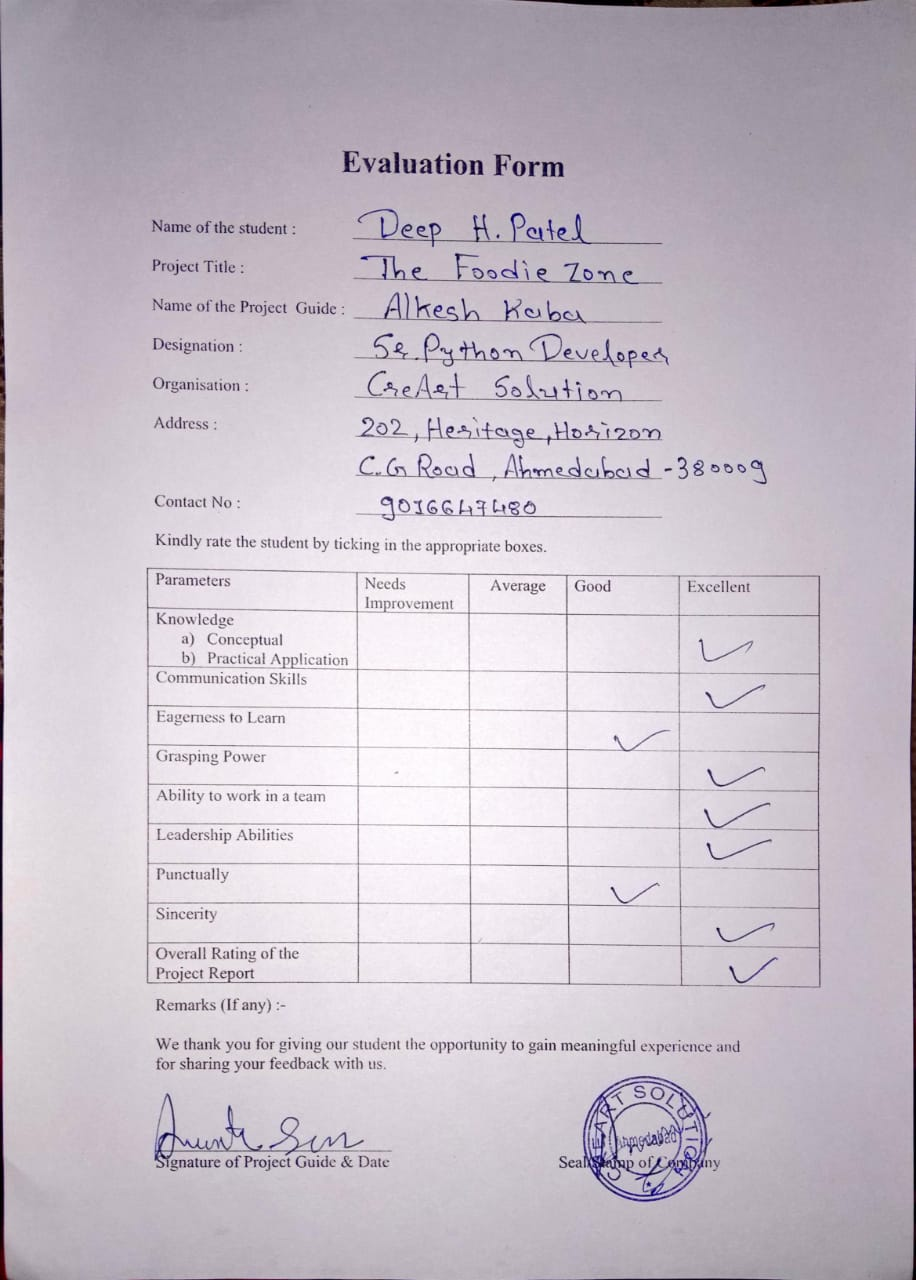 Evaluation Form
Name of the student : Deep H. Patel
Project Title : The Foodie Zone
Name of the Project Guide : Alkesh Kaba
Designation : Sr. Python Developer
Organisation : CreArt Solution
Address : 202, Heritage, Horizon
C.G Road, Ahmedabad - 380009
Contact No : 9016647480
Kindly rate the student by ticking in the appropriate boxes.
Parameters Needs Improvement Average Good Excellent
Knowledge
a) Conceptual
b) Practical Application ✓
Communication Skills ✓
Eagerness to Learn ✓
Grasping Power ✓
Ability to work in a team ✓
Leadership Abilities ✓
Punctually ✓
Sincerity ✓
Overall Rating of the
Project Report ✓
Remarks (If any) :-
We thank you for giving our student the opportunity to gain meaningful experience and
for sharing your feedback with us.
Signature of Project Guide & Date
CREART SOLUTION
Ahmedabad
Seal/Stamp of Company